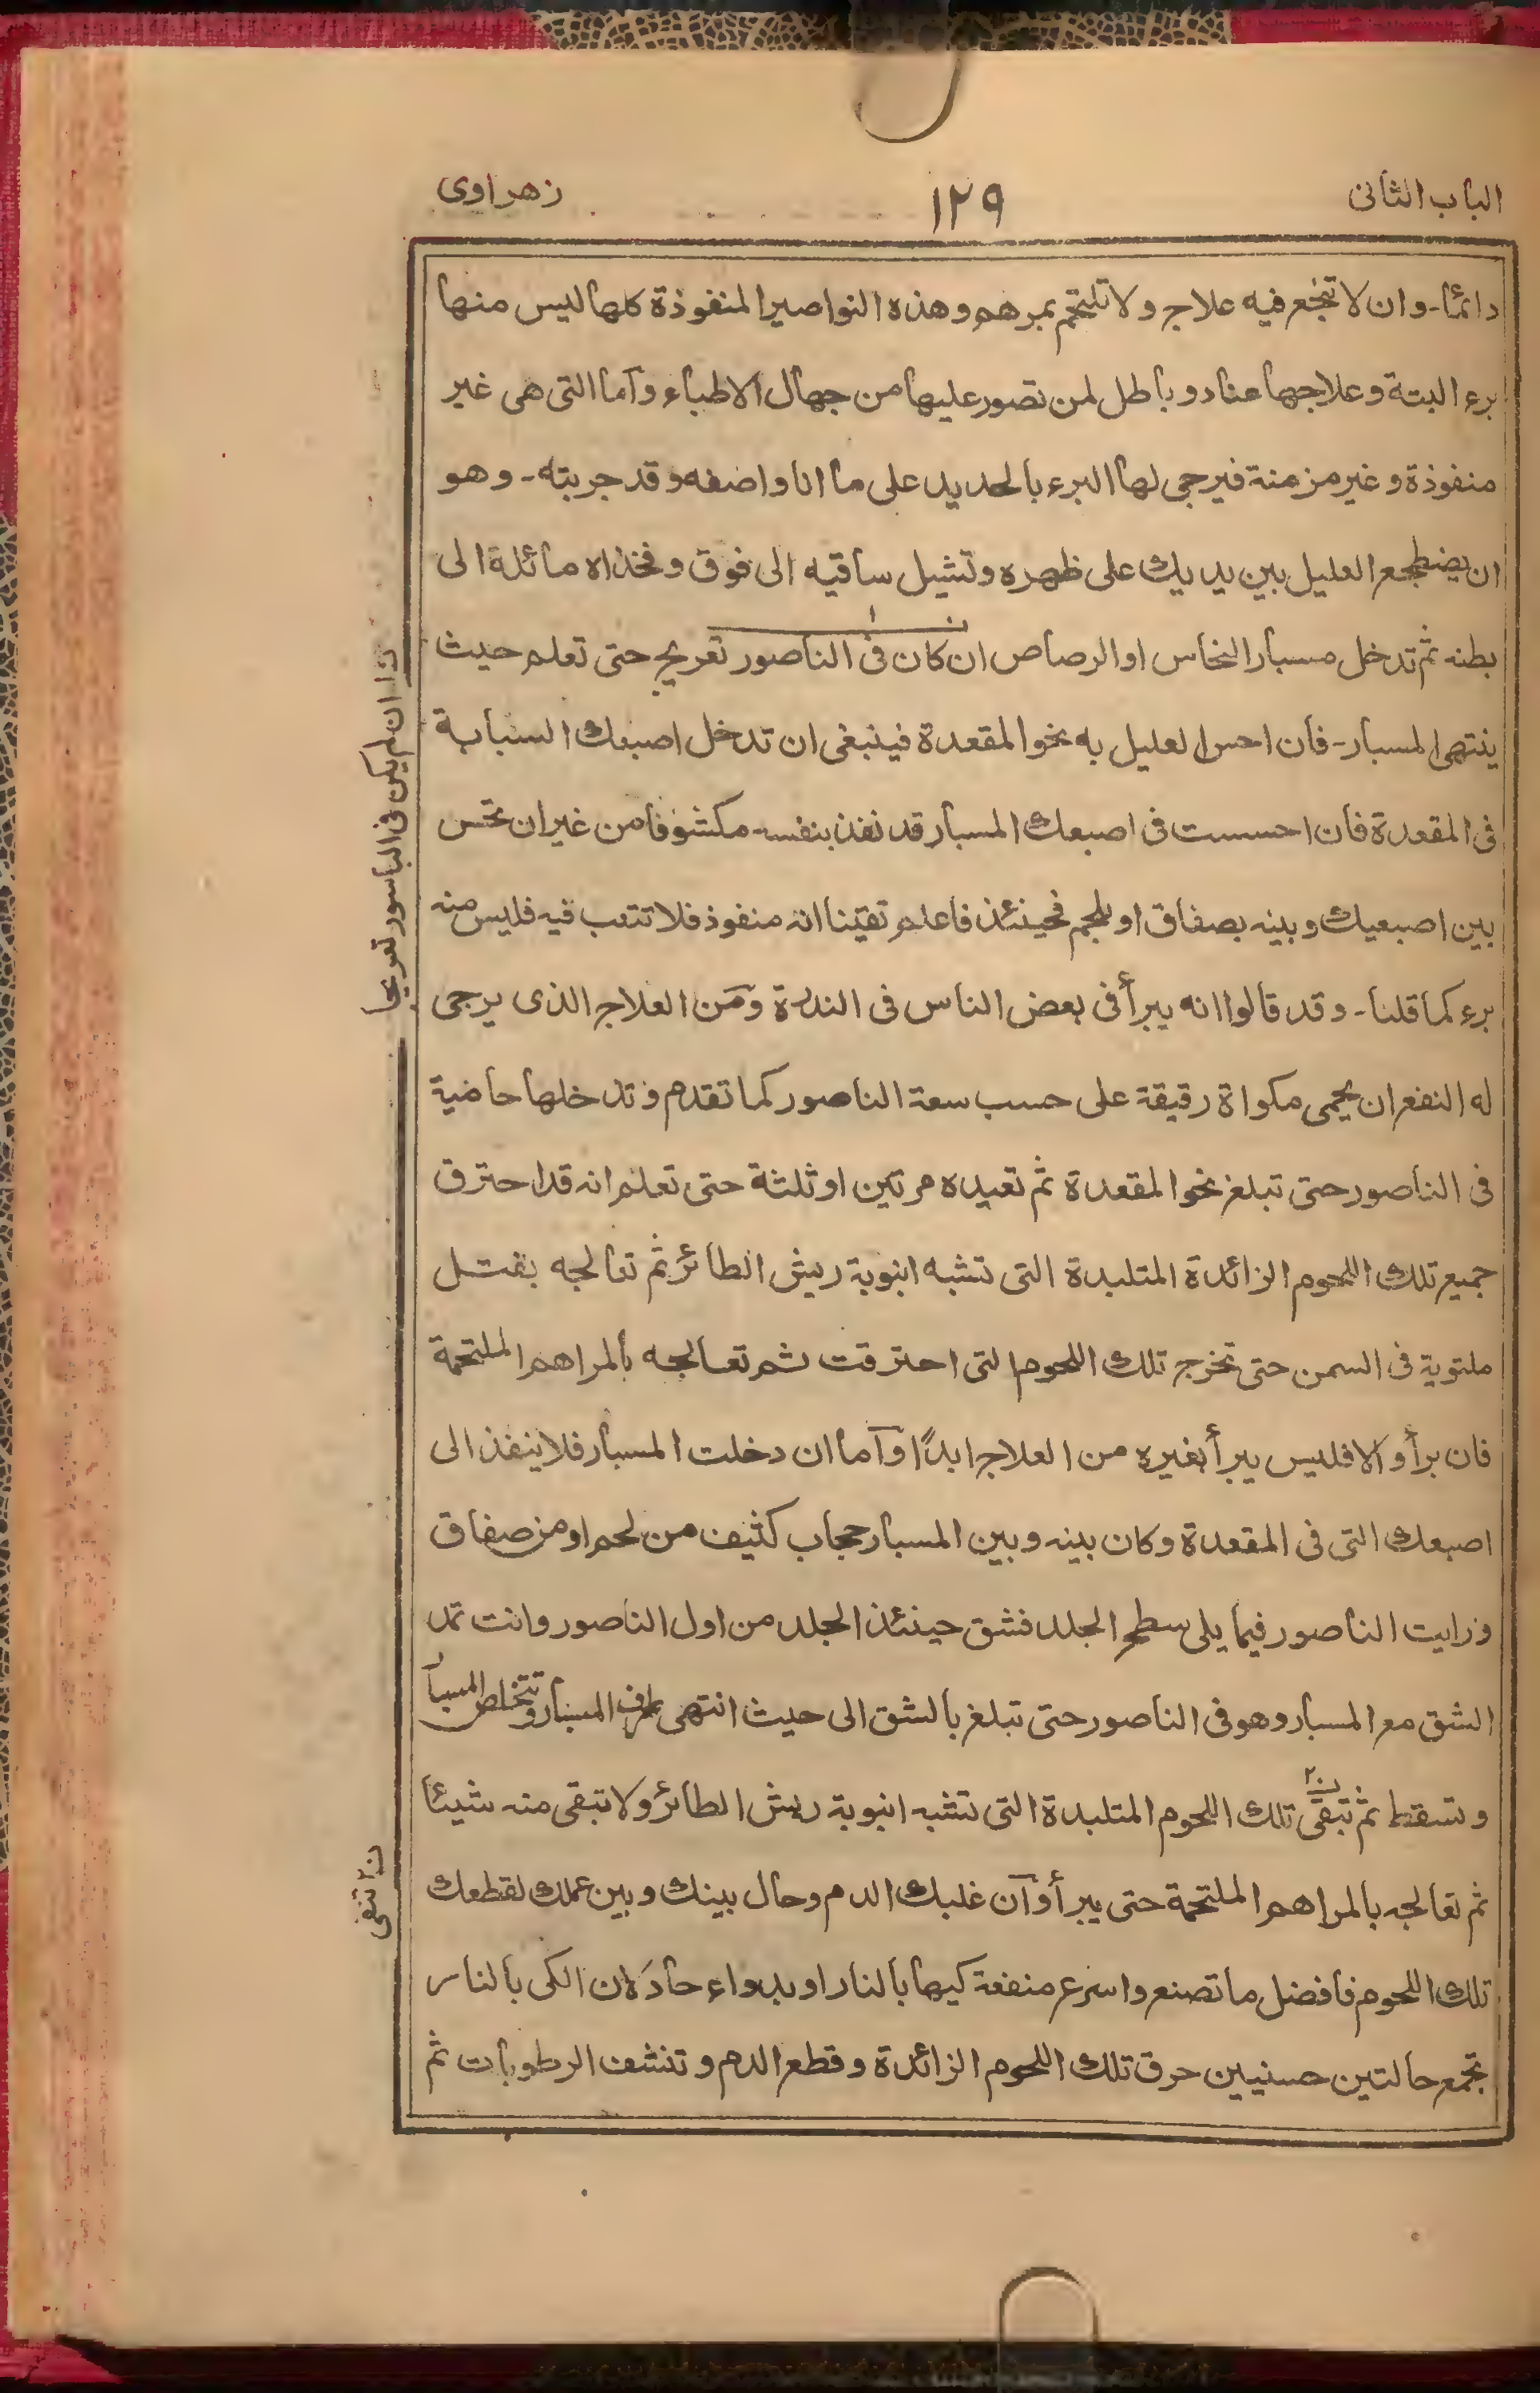 الباب الثانى
١٢٩
زهراوى
دائما - وان لا تنجع فيه علاج ولا تلتحم بمرهم وهذه النواصير المنفوذة كلها ليس منها
برء البتة وعلاجها عناد وباطل لمن تصور عليها من جهال الاطباء وآما التى هى غير
منفوذة وغير مزمنة فيرجى لها البرء بالحديد على ما انا واصفه وقد جربته - وهو
ان يضطجع العليل بين يديك على ظهره وتشيل ساقيه الى فوق وفخذاه مائلة الى
بطنه ثم تدخل مسبار النحاس او الرصاص ان كان فى الناصور تعريج حتى تعلم حيث
ينتهى المسبار - فان احس العليل به نحو المقعدة فينبغى ان تدخل اصبعك السبابة
فى المقعدة فان احسست فى اصبعك المسبار قد نفذ بنفسه مكشوفا من غير ان تحس
بين اصبعيك وبينه بصفاق او لحم فحينئذ فاعلم تقينا انه منفوذ فلا تتعب فيه فليس منه
برء كما قلنا - وقد قالوا انه يبرأ فى بعض الناس فى الندرة ومن العلاج الذى يرجى
له النفع ان يحمى مكواة رقيقة على حسب سعة الناصور كما تقدم وتدخلها حامية
فى الناصور حتى تبلغ نحو المقعدة ثم تعيده مرتين او ثلثة حتى تعلم انه قد احترق
جميع تلك اللحوم الزائدة المتلبدة التى تشبه انبوبة ريش الطائر ثم تعالجه بفتل
ملتوية فى السمن حتى تخرج تلك اللحوم التى احترقت ثم تعالجه بالمراهم الملتحمة
فان برأ والا فليس يبرأ بغيره من العلاج ابدًا وآما ان دخلت المسبار فلا ينفذ الى
اصبعك التى فى المقعدة وكان بينه وبين المسبار حجاب كثيف من لحم او من صفاق
ورايت الناصور فيما يلى سطح الجلد فشق حينئذ الجلد من اول الناصور وانت تمد
الشق مع المسبار وهو فى الناصور حتى تبلغ بالشق الى حيث انتهى طرف المسبار وتتخلص المسبار
وتسقط ثم تبقى تلك اللحوم المتلبدة التى تشبه انبوبة ريش الطائر ولا تبقى منه شيئا
ثم تعالجه بالمراهم الملتحمة حتى يبرأ وآن غلبك الدم وحال بينك وبين عملك لقطعك
تلك اللحوم فافضل ما تصنع واسرع منفعة كيها بالنار او بدواء حاد لان الكى بالنار
تجمع حالتين حسنيين حرق تلك اللحوم الزائدة وقطع الدم وتنشف الرطوبات ثم
ن١ ان لم يكن فى الباسور تعريجا
ن٢ تنقى